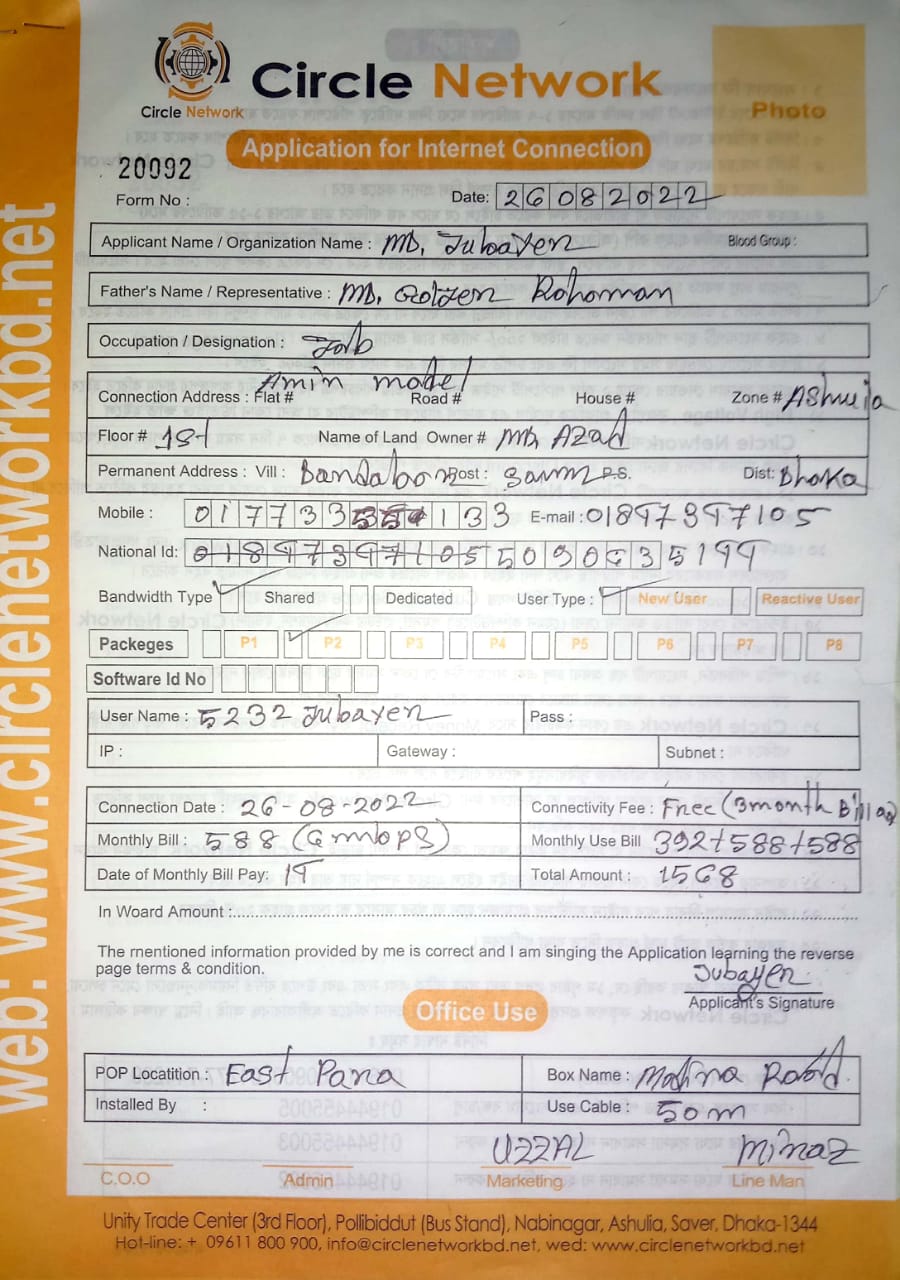 Circle Network
Circle Network
Photo
Application for Internet Connection
20092
Form No :
Date: 26082022
Applicant Name / Organization Name : MD. Jubayer Blood Group :
Father's Name / Representative : MD. Golzer Rohoman
Occupation / Designation : Job
Amin model
Connection Address : Flat # Road # House # Zone # Ashulia
Floor # 1st Name of Land Owner # MD, Azad
Permanent Address : Vill : Post : P.S. Dist: Dhaka
Mobile : 133 E-mail : 01897397105
National Id: 01897397105 5090635199
Bandwidth Type Shared Dedicated User Type : New User Reactive User
Packeges P1 P2 P3 P4 P5 P6 P7 P8
Software Id No
User Name : 5232 Jubayer Pass :
IP : Gateway : Subnet :
Connection Date : 26-08-2022 Connectivity Fee : Free (3month Bill ad
Monthly Bill : 588 (6 mbps) Monthly Use Bill 392+588+588
Date of Monthly Bill Pay: Total Amount : 1568
In Woard Amount :
The mentioned information provided by me is correct and I am singing the Application learning the reverse
page terms & condition.
Jubayer
Applicant's Signature
Office Use
POP Loatition : East Para Box Name : Madina Road
Installed By : Use Cable : 50m
UZZAL Minaz
C.O.O Admin Marketing Line Man
Unity Trade Center (3rd Floor), Pollibiddut (Bus Stand), Nabinagar, Ashulia, Saver, Dhaka-1344
Hot-line: + 09611 800 900, info@circlenetworkbd.net, wed: www.circlenetworkbd.net
web: www.circlenetworkbd.net